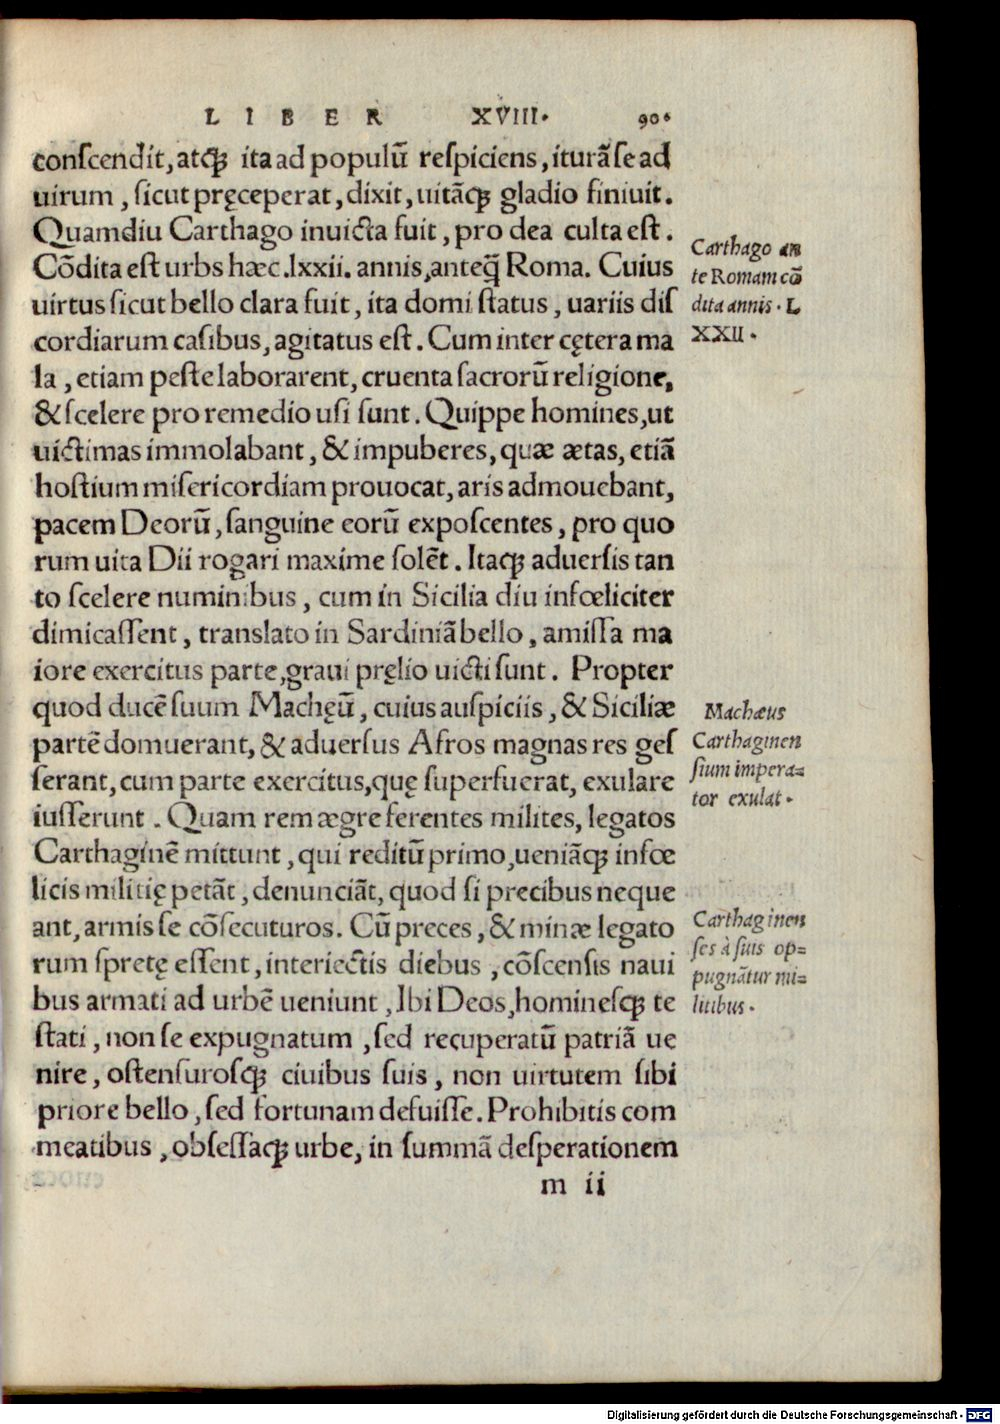 LIBER XVIII. 90.
conſcendit, atqꝫ ita ad populū reſpiciens, iturā ſe ad
uirum, ſicut pręceperat, dixit, uitāqꝫ gladio finiuit.
Quamdiu Carthago inuicta fuit, pro dea culta eſt.
Cōdita eſt urbs hæc .lxxii. annis, anteq̃ Roma. Cuius
uirtus ſicut bello clara fuit, ita domi ſtatus, uariis diſ
cordiarum caſibus, agitatus eſt. Cum inter cętera ma
la, etiam peſte laborarent, cruenta ſacrorū religione,
& ſcelere pro remedio uſi ſunt. Quippe homines, ut
uictimas immolabant, & impuberes, quæ ætas, etiā
hoſtium miſericordiam prouocat, aris admouebant,
pacem Deorū, ſanguine eorū expoſcentes, pro quo
rum uita Dii rogari maxime ſolēt. Itaqꝫ aduerſis tan
to ſcelere numinibus, cum in Sicilia diu infœliciter
dimicaſſent, translato in Sardiniā bello, amiſſa ma
iore exercitus parte, graui pręlio uicti ſunt. Propter
quod ducē ſuum Machęū, cuius auſpiciis, & Siciliæ
partē domuerant, & aduerſus Afros magnas res geſ
ſerant, cum parte exercitus, quę ſuperfuerat, exulare
iuſſerunt. Quam rem ægre ferentes milites, legatos
Carthaginē mittunt, qui reditū primo, ueniāqꝫ infœ
licis militię petāt, denunciāt, quod ſi precibus neque
ant, armis ſe cōſecuturos. Cū preces, & minæ legato
rum ſpretę eſſent, interiectis diebus, cōſcenſis naui
bus armati ad urbē ueniunt, Ibi Deos, hominesqꝫ te
ſtati, non ſe expugnatum, ſed recuperatū patriā ue
nire, oſtenſurosqꝫ ciuibus ſuis, non uirtutem ſibi
priore bello, ſed fortunam defuiſſe. Prohibitis com
meatibus, obſeſſaqꝫ urbe, in ſummā deſperationem
m ii
Carthago an
te Romam cō
dita annis. L
XXII.
Machæus
Carthaginen
ſium impera=
tor exulat.
Carthaginen
ſes à ſuis op=
pugnātur mi=
litibus.
Digitalisierung gefördert durch die Deutsche Forschungsgemeinschaft - DFG